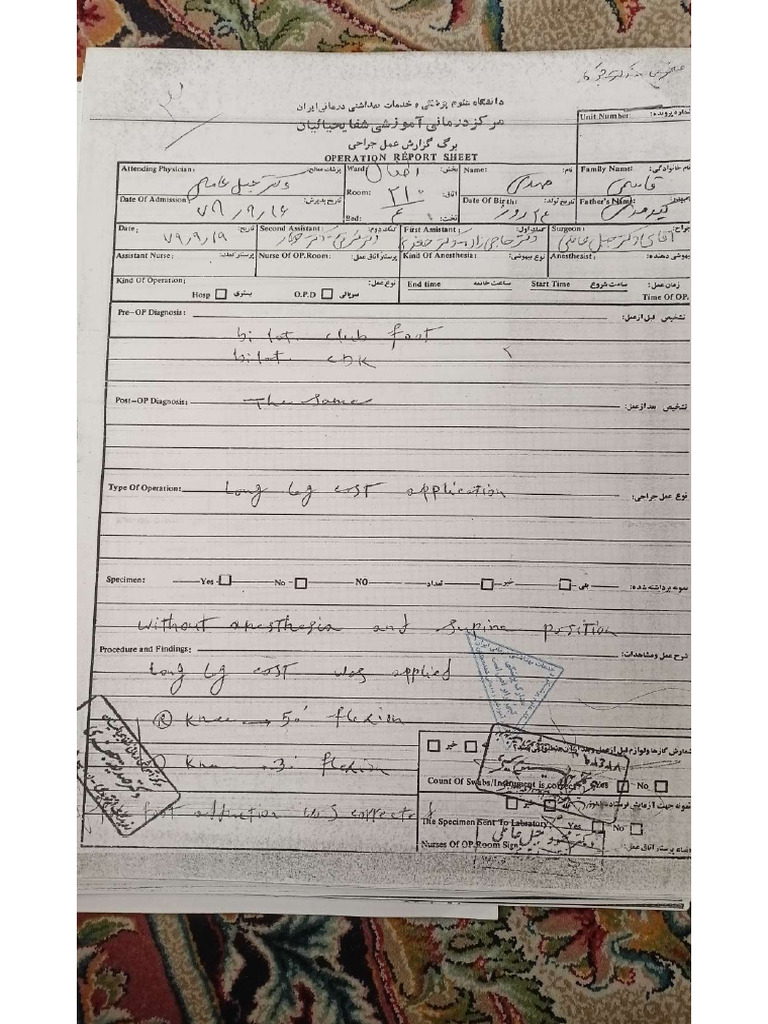 دانشگاه علوم پزشکی و خدمات بهداشتی درمانی ایران
مرکز درمانی آموزشی شفا یحیائیان
برگ گزارش عمل جراحی
OPERATION REPORT SHEET
Unit Number: شماره پرونده:
Attending Physician: پزشک معالج: دکتر جبل عاملی
Ward بخش: اطفال
Name: نام: مهدی
Family Name: نام خانوادگی: قاسمی
Date Of Admission تاریخ پذیرش: ۷۹/۹/۱۶
Room: اتاق: ۲۱۰
Bed: تخت:
Date Of Birth: تاریخ تولد: ۲۴ روز
Father's Name: نام پدر:
Date: تاریخ: ۷۹/۹/۱۹
Second Assistant: کمک دوم:
First Assistant: کمک اول:
Surgeon: جراح: آقای دکتر جبل عاملی
Assistant Nurse: پرستار کمک:
Nurse Of OP.Room: پرستار اتاق عمل:
Kind Of Anesthesia: نوع بیهوشی:
Anesthesist: بیهوشی دهنده:
Kind Of Operation: نوع عمل:
Hosp بستری O.P.D سرپائی
End time ساعت خاتمه Start Time ساعت شروع زمان عمل:
Time Of OP.
Pre-OP Diagnosis: تشخیص قبل از عمل:
bilat. club foot
bilat. CDK
Post-OP Diagnosis: The same تشخیص بعد از عمل:
Type Of Operation: Long leg cast application نوع عمل جراحی:
Specimen: Yes No NO تعداد خیر بلی نمونه برداشته شده:
without anesthesia and supine position
Procedure and Findings: شرح عمل ومشاهدات:
Long leg cast was applied
Ⓡ knee → 50° flexion
knee → 30° flexion
foot adduction was corrected
خیر
Count Of Swabs/Instrument is correct Yes No
The Specimen Sent To Labratory: Yes No
Nurses Of OP.Room Sign
دکتر محمود جبل عاملی